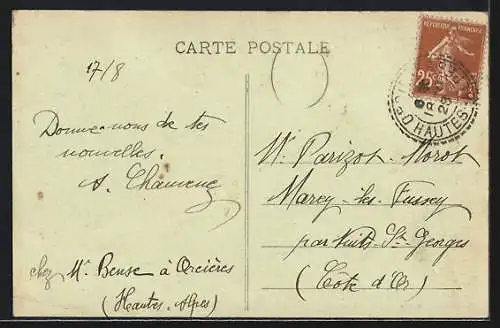 CARTE POSTALE
17/8
Donne-nous de tes
nouvelles.
chez Mr. Bense à Orcières
(Hautes-Alpes)
Mr. Parizot-Morot
Marey-les-Fussey
par Nuits-St-Georges
(Côte d'Or)
REPUBLIQUE FRANCAISE
25c
HAUTES